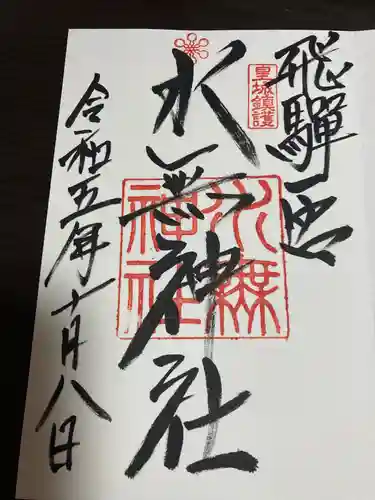 飛騨一宮
皇城鎮護
水無神社
水無神社
令和五年十一月八日